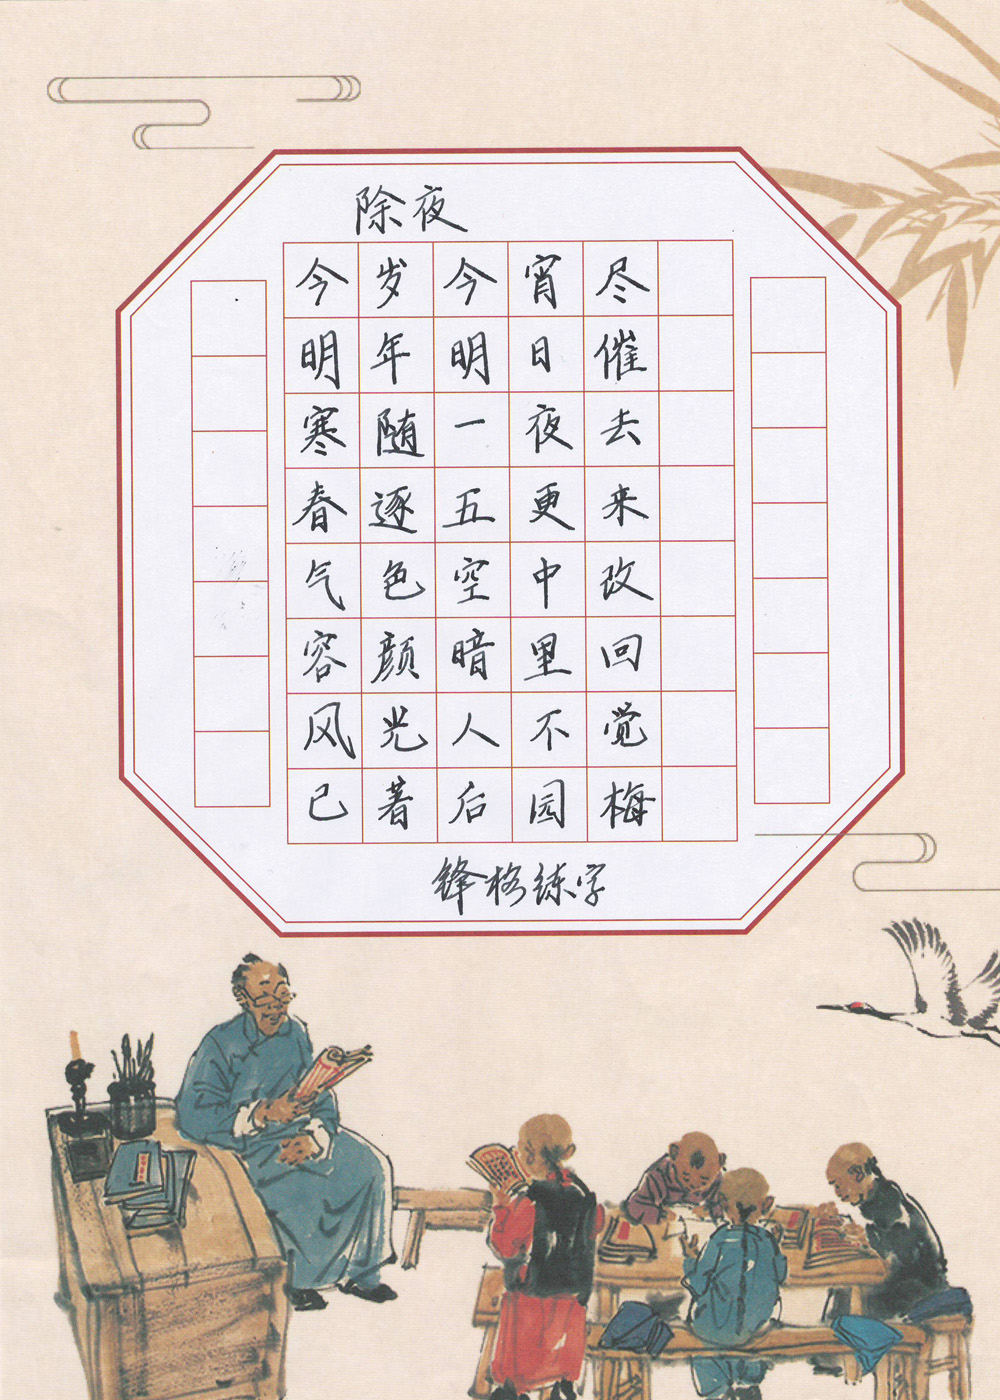 除夜
今岁今宵尽
明年明日催
寒随一夜去
春逐五更来
气色空中改
容颜暗里回
风光人不觉
已著后园梅
锋格练字